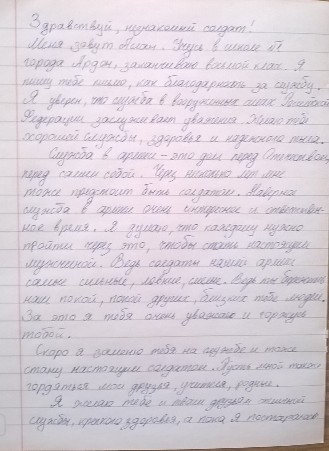 Здравствуй, незнакомый солдат!
Меня зовут Аслан. Учусь в школе №1
города Ардон, заканчиваю восьмой класс. Я
пишу тебе письмо, как благодарность за службу.
Я уверен, что служба в вооружённых силах Российской
Федерации заслуживает уважения. Желаю тебе
хорошей службы, здоровья и надежного тыла.
Служба в армии – это долг перед Отечеством,
перед самим собой. Через несколько лет мне
тоже предстоит быть солдатом. Наверное
служба в армии очень интересное и ответствен-
ное время. Я думаю, что каждому нужно
пройти через это, чтобы стать настоящим
мужчиной. Ведь солдаты нашей армии
самые сильные, ловкие, смелые. Ведь ты бережёшь
наш покой, покой друзей, близких тебе людей.
За это я тебя очень уважаю и горжусь
тобой.
Скоро я заменю тебя на службе и тоже
стану настоящим солдатом. Пусть мной тоже
гордятся мои друзья, учителя, родные.
Я желаю тебе и твоим друзьям
службы, крепкого здоровья, а пока я постараюсь